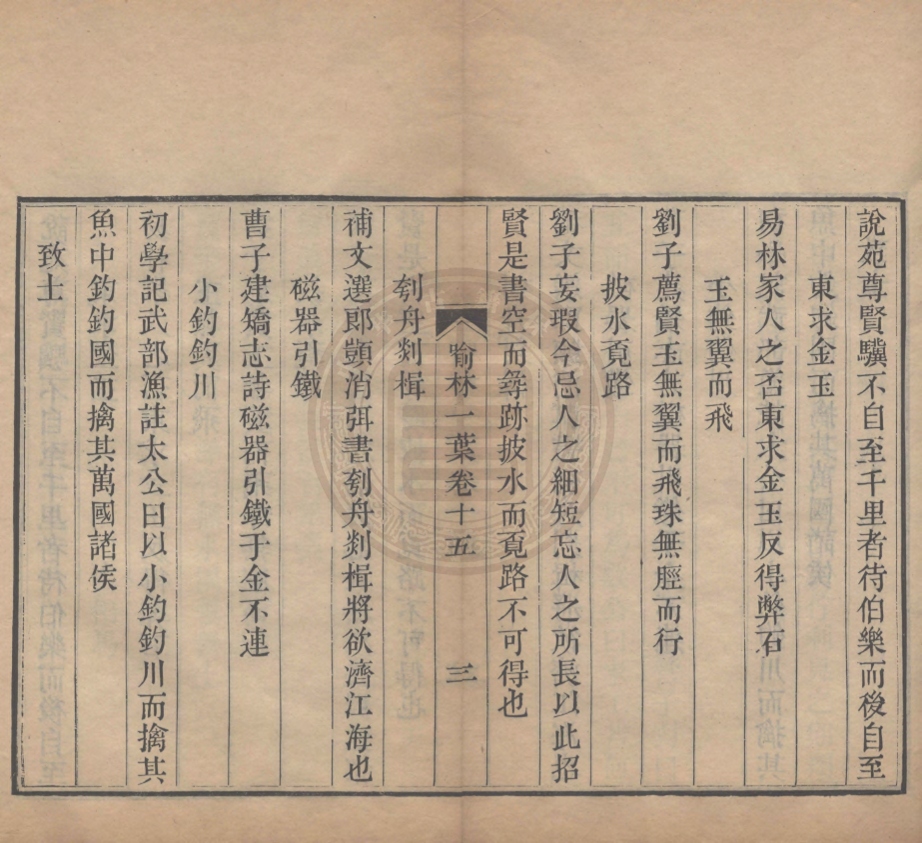 說苑尊賢驥不自至千里者待伯樂而後自至
東求金玉
易林家人之否東求金玉反得弊石
玉無翼而飛
劉子薦賢玉無翼而飛珠無脛而行
披水覔路
劉子妄瑕今忌人之細短忘人之所長以此招
賢是書空而尋跡披水而覔路不可得也
喻林一葉卷十五 三
刳舟剡楫
補文選郎顗消弭書刳舟剡楫將欲濟江海也
磁器引鐵
曹子建矯志詩磁器引鐵于金不連
小釣釣川
初學記武部漁註太公曰以小釣釣川而擒其
魚中釣釣國而擒其萬國諸侯
致士